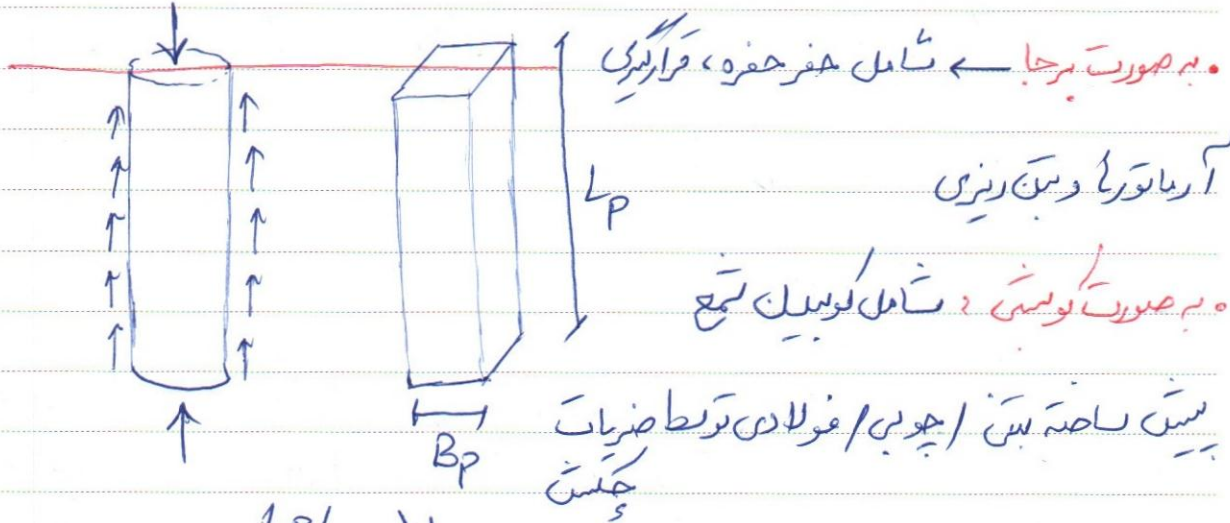 • به صورت برجا ← شامل حفر حفره، قرارگیری
آرماتورها و بتن ریزی
Lp
• به صورت کوبشی : شامل کوبیدن شمع
پیش ساخته بتنی / چوبی / فولادی توسط ضربات
چکش
Bp